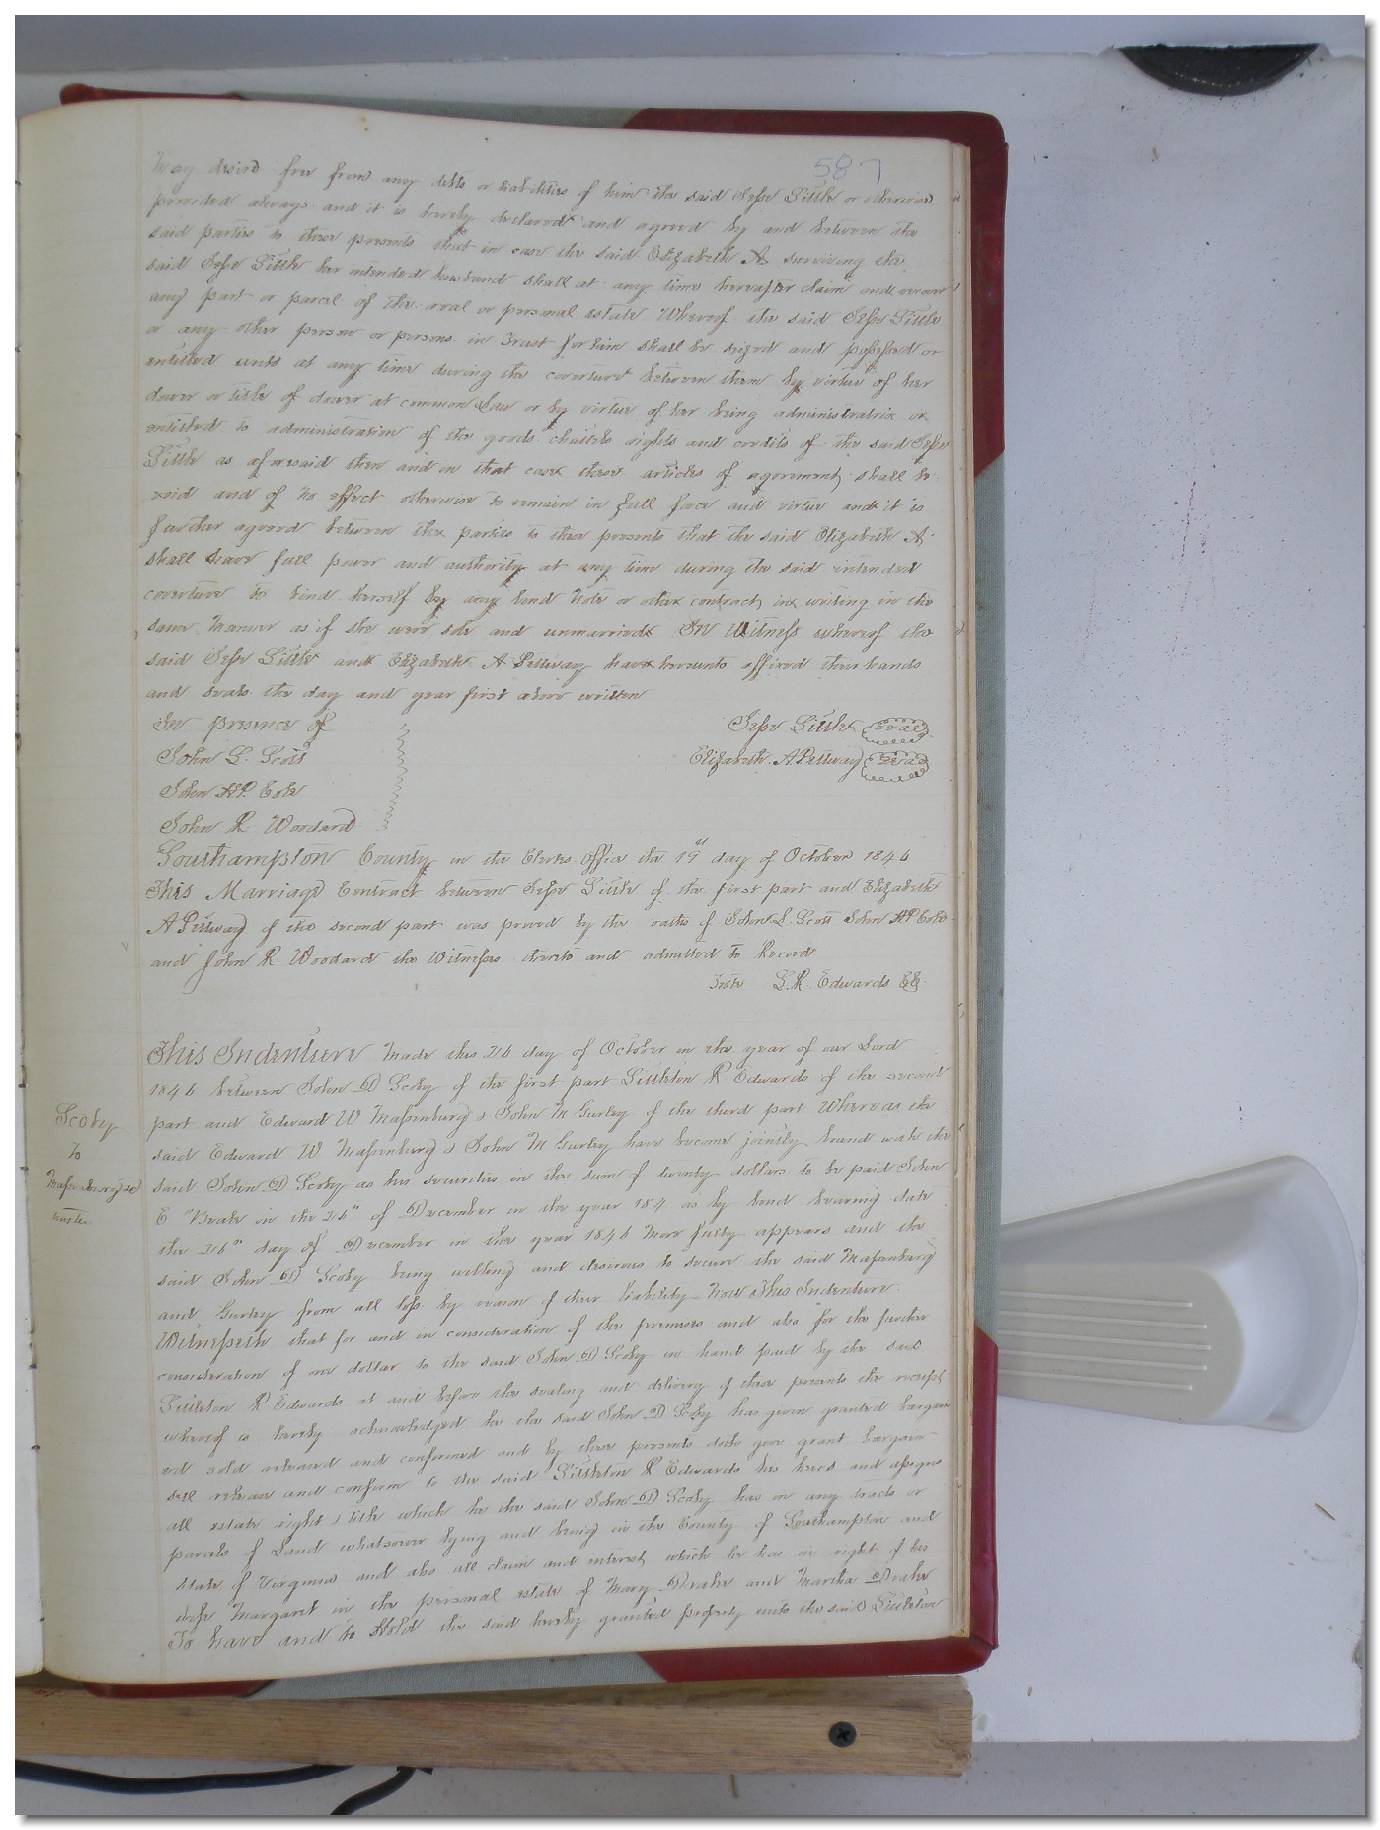 587
may desire free from any debts or liabilities of him the said Jesse Little or otherwise
provided always and it is hereby declared and agreed by and between the
said parties to these presents that in case the said Elizabeth A surviving the
said Jesse Little her intended husband shall at any time hereafter claim and recover
any part or parcel of the real or personal estate Whereof the said Jesse Little
or any other person or persons in Trust for him shall be seized and possessed or
entitled unto at any time during the coverture between them by virtue of her
dower or title of dower at common Law or by virtue of her being administratrix or
entitled to administration of the goods chattels rights and credits of the said Jesse
Little as aforesaid then and in that case these articles of agreement shall be
void and of no effect otherwise to remain in full force and virtue and it is
further agreed between the parties to these presents that the said Elizabeth A
shall have full power and authority at any time during the said intended
coverture to bind herself by any bond note or other contract in writing in the
same manner as if she were sole and unmarried In Witness whereof the
said Jesse Little and Elizabeth A Pettway have hereunto affixed their hands
and seals the day and year first above written
In presence of
Jesse Little Seal
John L. Scott
Elizabeth A Pettway Seal
John
John R Woodard
Southampton County in the Clerks office the 19th day of October 1846
This Marriage Contract between Jesse Little of the first part and Elizabeth
A Pettway of the second part was proved by the oaths of John L. Scott John
and John R Woodard the Witnesses thereto and admitted to Record
Teste L. R. Edwards CC
This Indenture made this 26 day of October in the year of our Lord
1846 between John D Scoby of the first part Littleton R Edwards of the second
part and Edward W Massenburg & John M Gurley of the third part Whereas the
Scoby
to
Massenburg &c
trustee
said Edward W Massenburg & John M Gurley have become jointly bound with the
said John D Scoby as his securities in the sum of twenty dollars to be paid John
E Beale in the 26" of December in the year 184 as by bond bearing date
the 26" day of December in the year 1846 more fully appears and the
said John D Scoby being willing and desirous to secure the said Massenburg
and Gurley from all loss by reason of their liability Now This Indenture
Witnesseth that for and in consideration of the premises and also for the further
consideration of one dollar to the said John D Scoby in hand paid by the said
Littleton R Edwards at and before the sealing and delivery of these presents the receipt
whereof is hereby acknowledged he the said John D Scoby has given granted bargain
ed sold released and confirmed and by these presents doth give grant bargain
sell release and confirm to the said Littleton R Edwards his heirs and assigns
all estate right & title which he the said John D Scoby has in any tracts or
parcels of Land whatsoever lying and being in the County of Southampton and
State of Virginia and also all claim and interest which he has in right of his
wife Margaret in the personal estate of Mary Drake and Martha Drake
To have and to Hold the said hereby granted property unto the said Littleton